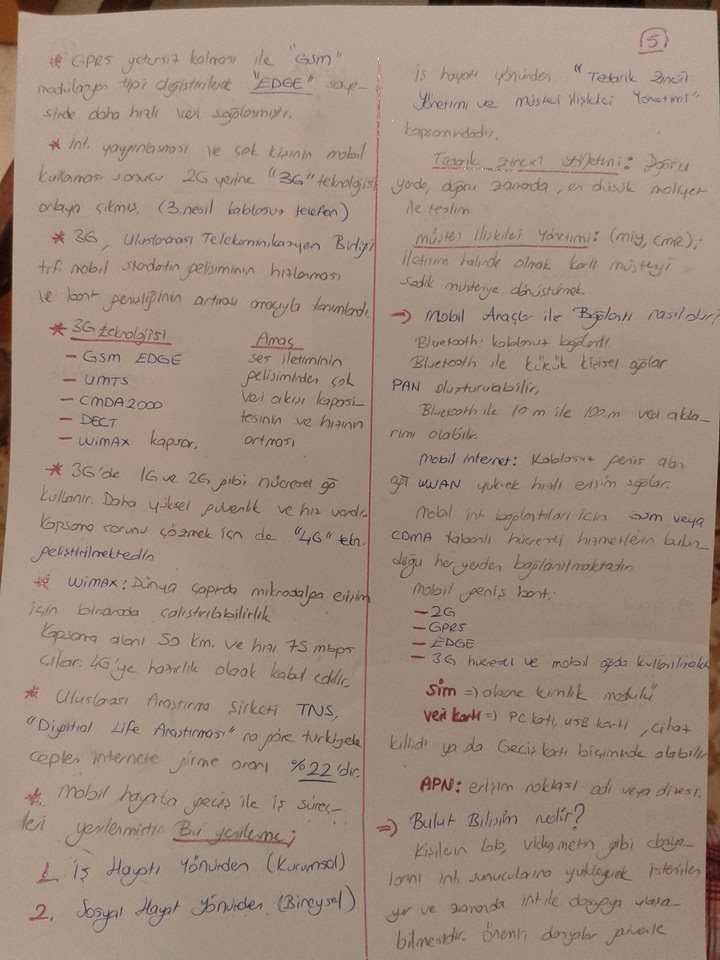 * GPRS yetersiz kalması ile "GSM"
modülasyon tipi değiştirilerek "EDGE" saye-
sinde daha hızlı veri sağlanmıştır.
* İnt. yaygınlaşması ve çok kişinin mobil
kullanması sonucu 2G yerine "3G" teknolojisi
ortaya çıkmış. (3. nesil kablosuz telefon)
* 3G, Uluslararası Telekominikasyon Birliği
trf. mobil standatın gelişiminin hızlanması
ve bant genişliğinin artması amacıyla tanımlandı.
* 3G teknolojisi Amaç
- GSM EDGE ses iletiminin
- UMTS gelişiminden çok
- CMDA2000 veri akışı kapasi-
- DECT tesinin ve hızının
- WiMAX kapsar. artması
* 3G'de 1G ve 2G gibi hücresel ağ
kullanır. Daha yüksek güvenlik ve hız vardır.
Kapsama sorunu çözmek için de "4G" tekn.
geliştirilmektedir.
* WiMAX: Dünya çapında mikrodalga erişim
için birarada çalıştırılabilirlik
Kapsama alanı 50 km. ve hızı 75 mbps
çıkar. 4G'ye hazırlık olarak kabul edilir.
* Uluslararası Araştırma Şirketi TNS,
"Digitral Life Araştırması"na göre türkiyede
cepten internete girme oranı %22'dir.
* Mobil hayata geçiş ile iş süreç-
leri yenilenmiştir. Bu yenileme;
1. İş Hayatı Yönünden (Kurumsal)
2. Sosyal Hayat Yönünden (Bireysel)
5
İş hayatı yönünden "Tedarik zinciri
Yönetimi ve müşteri ilişkileri Yönetimi"
kapsamındadır.
Tedarik zinciri yönetimi: Doğru
yerde, doğru zamanda, en düşük maliyet
ile teslim.
Müşteri İlişkileri Yönetimi: (miy, CMR);
iletişim halinde olmak karlı müşteriyi
sadık müşteriye dönüştürmek.
⇒ Mobil Araçlar ile Bağlantı nasıl olur?
Bluetooth: kablosuz bağlantı.
Bluetooth ile küçük kişisel ağlar
PAN oluşturulabilir.
Bluetooth ile 10 m ile 100 m veri akta-
rımı olabilir.
Mobil internet: Kablosuz geniş alan
ağı WWAN yüksek hızlı erişim sağlar.
Mobil int. bağlantıları için GSM veya
CDMA tabanlı hücresel hizmetlerin bulun-
duğu her yerden bağlanılmaktadır.
Mobil geniş bant;
- 2G
- GPRS
- EDGE
- 3G hücresel ve mobil ağda kullanılmakta
Sim ⇒ abone kimlik modülü
Veri kartı ⇒ PC kartı, USB kartı, cihaz
kilidi ya da Geçiş kartı biçiminde olabilir.
APN: erişim noktası adı veya dizesi.
⇒ Bulut Bilişim nedir?
Kişilerin video, metin gibi dosya-
larını int. sunucularına yükleyerek istenilen
yer ve zamanda int ile dosyaya ulaşa-
bilmesidir. Önemli dosyalar güvenle